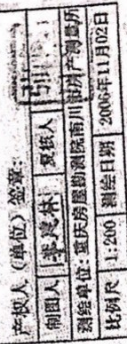 产权人（单位）签章：
制图人 李建林 复核人
测绘单位：重庆房屋勘测院南川房产测量所
比例尺 1:200 测绘日期 2006年11月02日